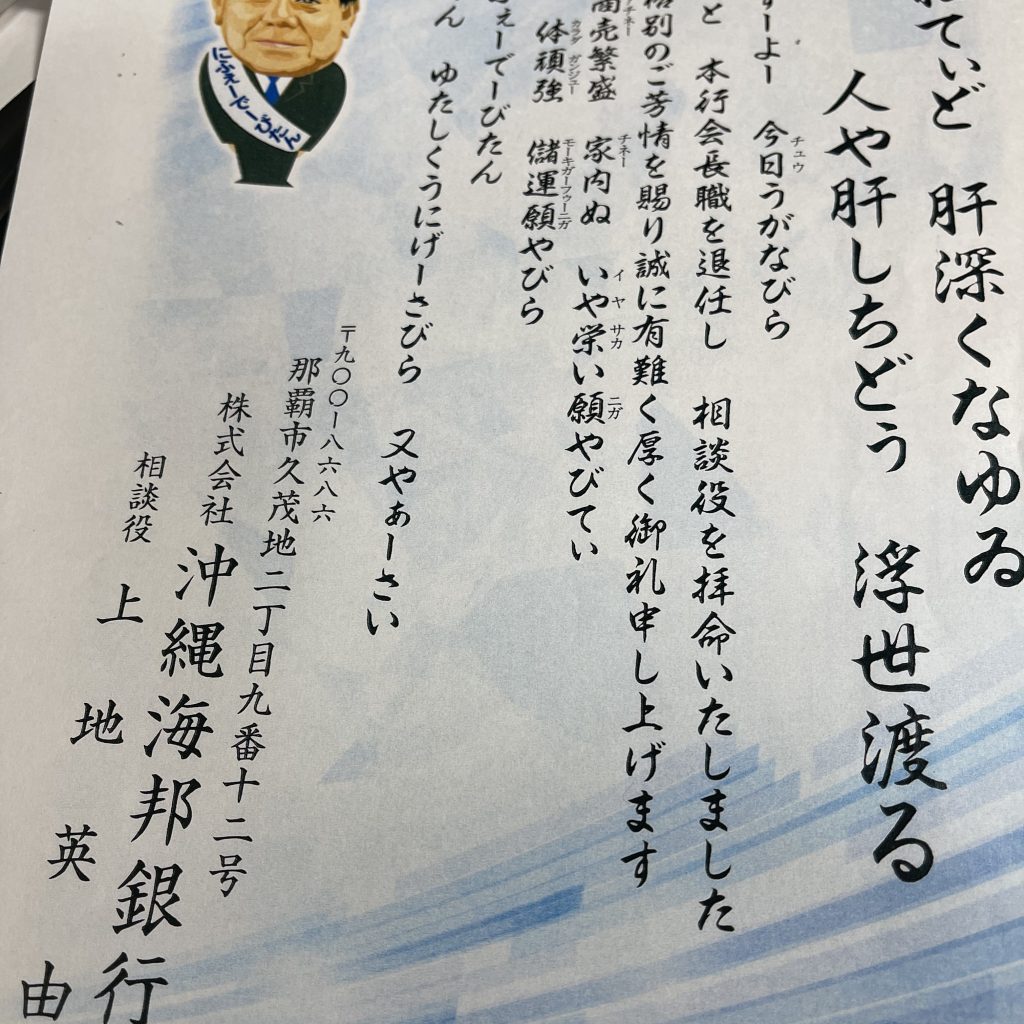 てぃど 肝深くなゆゐ
人や肝しちどぅ 浮世渡る
すーよー 今日うがなびら
チュウ
と 本行会長職を退任し 相談役を拝命いたしました
格別のご芳情を賜り誠に有難く厚く御礼申し上げます
商売繁盛 家内ぬ いや栄い願やびてぃ
チネー イヤサカ ニガ
体頑強 儲運願やびら
カラダ ガンジュー モーキガーフゥーニガ
ふぇーでーびたん
ん ゆたしくうにげーさびら 又やぁーさい
にふぇーでーびたん
〒九〇〇-八六八六
那覇市久茂地二丁目九番十二号
株式会社 沖縄海邦銀行
相談役 上地英由